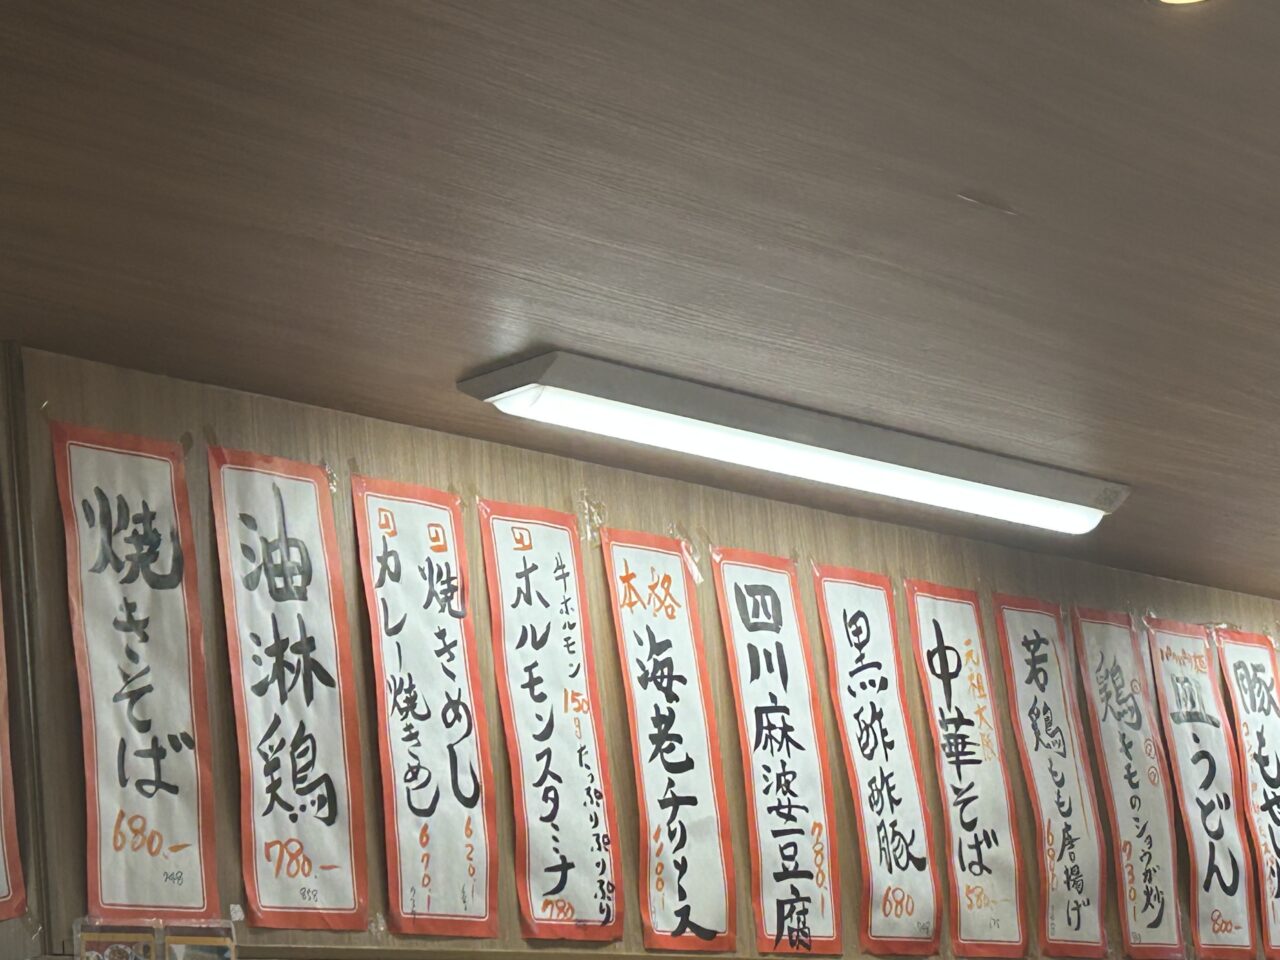 焼きそば
680.-
748
油淋鶏
780.-
858
焼きめし
620.-
カレー焼きめし
670.-
牛ホルモン150gたっぷりぷりぷり
ホルモンスタミナ
780
本格
海老チリソース
四川麻婆豆腐
780.-
黒酢酢豚
680
元祖大阪
中華そば
580.-
若鶏もも唐揚げ
680
鶏キモのショウガ炒
730.-
皿うどん
800.-
豚もやし